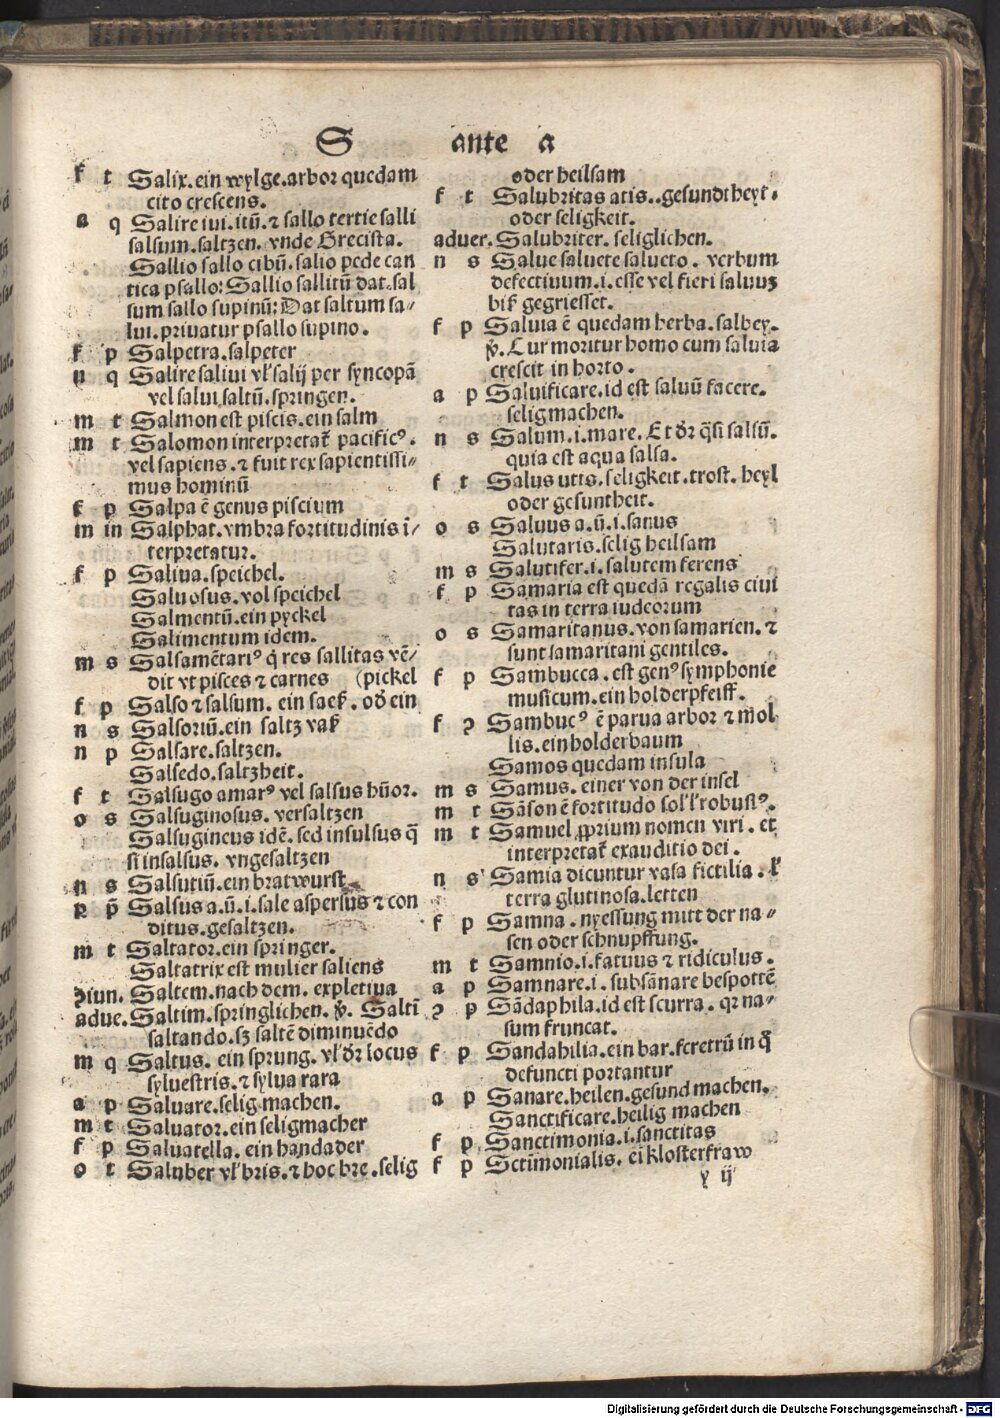 S ante a
f t Salix. ein wylge. arbor quedam
cito crescens.
a q Salire iui. itū. ⁊ sallo tertie salli
salsum. saltzen. vnde Grecista.
Sallio sallo cibū. salio pede can
tica psallo: Sallio sallitū dat. sal
sum sallo supinū: Dat saltum sa⸗
lui. priuatur psallo supino.
f p Salpetra. salpeter
n q Salire saliui vl' salij per syncopā
vel salui. saltū. springen.
m t Salmon est piscis. ein salm
m t Salomon interpretat᷑ pacificꝰ.
vel sapiens. ⁊ fuit rex sapientissi⸗
mus hominū
f p Salpa ē genus piscium
m in Salphat. vmbra fortitudinis ī⸗
terpretatur.
f p Saliua. speichel.
Saluosus. vol speichel
Salmentū. ein pyckel
Salimentum idem.
m s Salsamētariꝰ q̇ res sallitas vē⸗
dit vt pisces ⁊ carnes (pickel
f p Salso ⁊ salsum. ein sack. od̄ ein
n s Salsoriū. ein saltz vaß
n p Salsare. saltzen.
Salsedo. saltzheit.
f t Salsugo amarꝰ vel salsus hūor.
o s Salsuginosus. versaltzen
Salsugineus idē. sed insulsus q̄
si insalsus. vngesaltzen
n s Salsutiū. ein bratwurst
p̄ Salsus a. ū. i. sale aspersus ⁊ con
ditus. gesaltzen.
m t Saltator. ein springer.
Saltatrix est mulier saliens
ꝯiun. Saltem. nach dem. expletiua
adue. Saltim. springlichen. ꝟ. Saltī
saltando. sꝫ saltē diminuēdo
m q Saltus. ein sprung. vl' dr̄ locus
syluestris. ⁊ sylua rara
a p Saluare. selig machen.
m t Saluator. ein seligmacher
f p Saluatella. ein handader
o t Saluber vl' bris. ⁊ hoc bre. selig
oder heilsam
f t Salubritas atis.. gesundtheyt.
oder seligkeit.
aduer. Salubriter. seliglichen.
n s Salue saluete salueto. verbum
defectiuum. i. esse vel fieri saluuꝫ
biß gegriesset.
f p Saluia ē quedam herba. salbey.
ꝟ. Cur moritur homo cum saluia
crescit in horto.
a p Saluificare. id est saluū facere.
selig machen.
n s Salum. i. mare. Et dr̄ q̄si salsū.
quia est aqua salsa.
f t Salus utis. seligkeit. trost. heyl
oder gesuntheit.
o s Saluus a. ū. i. sanus
Salutaris. selig heilsam
m s Salutifer. i. salutem ferens
f p Samaria est quedā regalis ciui
tas in terra iudeorum
o s Samaritanus. von samarien. ⁊
sunt samaritani gentiles.
f p Sambucca. est genꝰ symphonie
musicum. ein holderpfeiff.
f ꝯ Sambucꝰ ē parua arbor ⁊ mol
lis. ein holderbaum
Samos quedam insula
m s Samus. einer von der insel
m t Sāson ē fortitudo sol' l' robustꝰ.
m t Samuel ꝓprium nomen viri. et
interpretat᷑ exauditio dei.
n s Samia dicuntur vasa fictilia. l'
terra glutinosa. letten
f p Samna. nyessung mitt der na⸗
sen oder schnupffung.
m t Samnio. i. fatuus ⁊ ridiculus.
a p Samnare. i. subsānare bespottē
ꝯ p Sādaphila. id est scurra. qꝛ na⸗
sum fruncat.
f p Sandahilia. ein bar. feretrū in q̄
defuncti portantur
a p Sanare. heilen. gesund machen.
Sanctificare. heilig machen
f p Sanctimonia. i. sanctitas
f p Sctīmonialis. ei klosterfraw
y ij
Digitalisierung gefördert durch die Deutsche Forschungsgemeinschaft - DFG